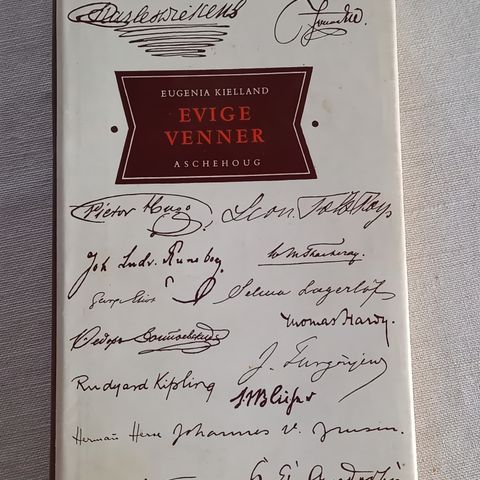 Charles Dickens
EUGENIA KIELLAND
EVIGE
VENNER
ASCHEHOUG
Victor Hugo Leon Tolstoy
Joh. Ludv. Runeberg. W M Thackeray.
George Eliot Selma Lagerlöf
Thomas Hardy.
J. Turgénjew
Rudyard Kipling
S S Blicher
Hermann Hesse Johannes V. Jensen.